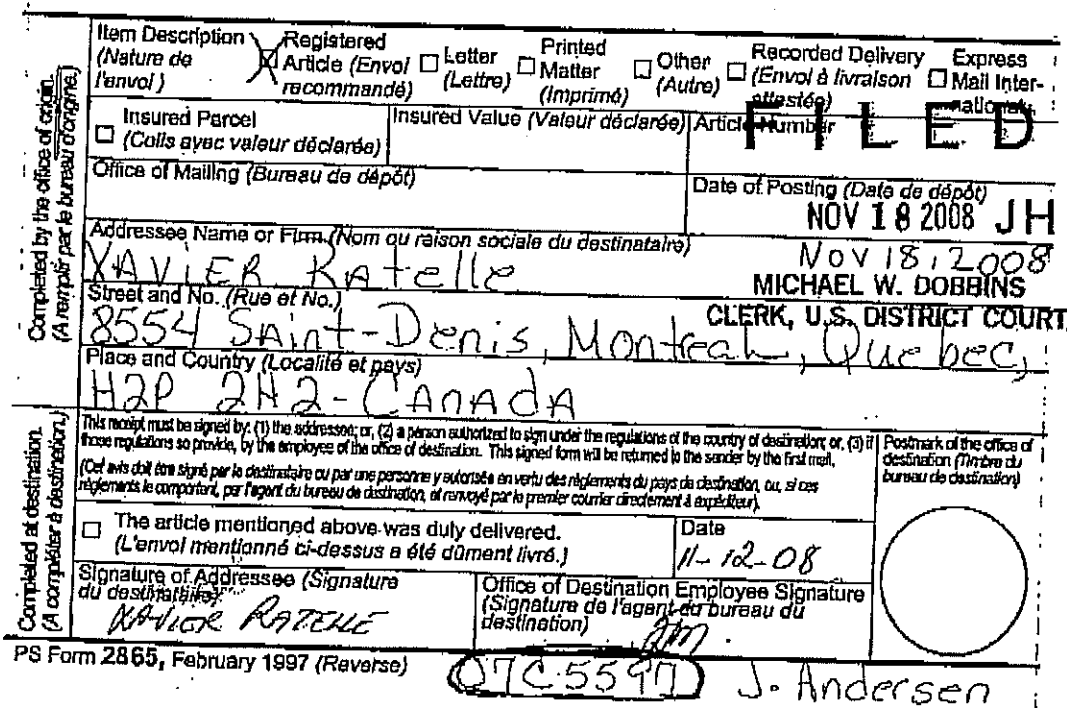 Completed by the office of origin.
(A remplir par le bureau d'origine.)
Item Description
(Nature de
l'envoi)
Registered
Article (Envoi
recommandé)
Letter
(Lettre)
Printed
Matter
(Imprimé)
Other
(Autre)
Recorded Delivery
(Envoi à livraison
attestée)
Express
Mail Inter-
national
Insured Parcel
(Colis avec valeur déclarée)
Insured Value (Valeur déclarée)
Article Number
FILED
Office of Mailing (Bureau de dépôt)
Date of Posting (Date de dépôt)
NOV 18 2008 JH
Addressee Name or Firm (Nom ou raison sociale du destinataire)
XAViER Ratelle
Nov 18, 2008
MICHAEL W. DOBBINS
CLERK, U.S. DISTRICT COURT
Street and No. (Rue et No.)
8554 SAint-Denis, Montreal, Quebec,
Place and Country (Localité et pays)
H2P 2H2-CAnAdA
Completed at destination.
(A compléter à destination.)
This receipt must be signed by: (1) the addressee; or, (2) a person authorized to sign under the regulations of the country of destination; or, (3) if
those regulations so provide, by the employee of the office of destination. This signed form will be returned to the sender by the first mail.
(Cet avis doit être signé par le destinataire ou par une personne y autorisée en vertu des règlements du pays de destination, ou, si ces
règlements le comportent, par l'agent du bureau de destination, et renvoyé par le premier courrier directement à expéditeur).
Postmark of the office of
destination (Timbre du
bureau de destination)
The article mentioned above was duly delivered.
(L'envoi mentionné ci-dessus a été dûment livré.)
Date
11-12-08
Signature of Addressee (Signature
du destinataire)
XAVIER RATELLE
Office of Destination Employee Signature
(Signature de l'agent du bureau du
destination)
PS Form 2865, February 1997 (Reverse)
07C5597 J. Andersen